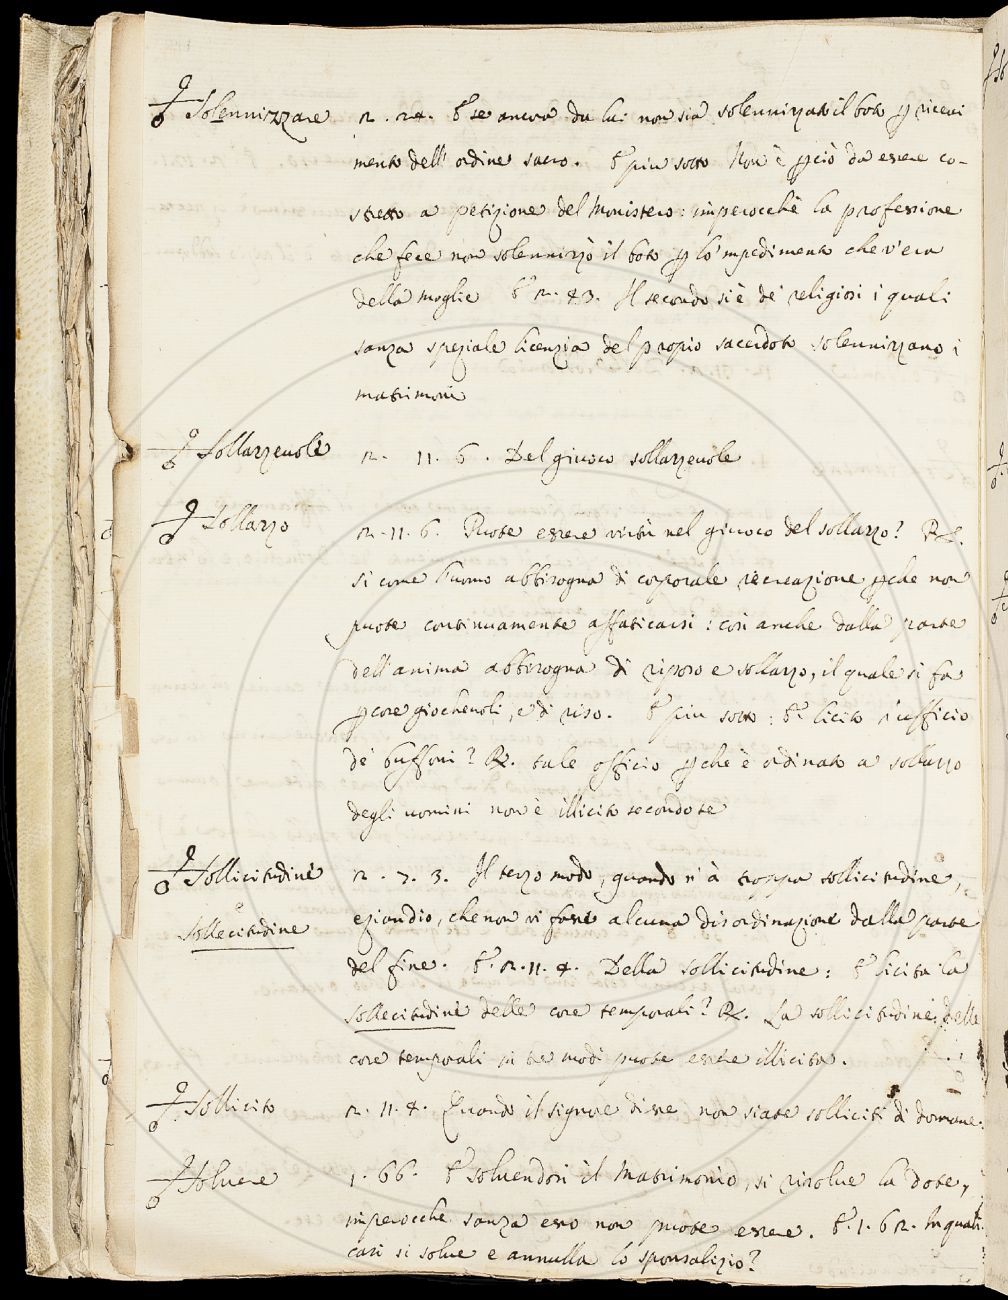 Solennizzare 2. 24. E se ancora da lui non sia solennizzato il boto p ricevi
mento dell'ordine sacro. E piu sotto Non è pciò da essere co-
stretto a petizione del Monistero: imperocchè la professione
che fece non solennizzò il boto p lo 'mpedimento che v'era
della moglie E 2. 43. Il secondo si è de' religiosi i quali
sanza speziale licenzia del propio sacerdote solennizzano i
matrimoni
Sollazzevole 2. 11. 6. Del giuoco sollazzevole
Sollazzo 2. 11. 6. Puote essere virtù nel giuoco del sollazzo? R.
si come l'uomo abbisogna di corporale recreazione pche non
puote continuamente affaticarsi: così anche dalla parte
dell'anima abbisogna di riposo e sollazzo, il quale si fa
p cose giochevoli, e di riso. E piu sotto: E licito l'ufficio
de' buffoni? R. tale officio pche è ordinato a sollazzo
degli uomini non è illicito secondo se
Sollicitudine 2. 7. 3. Il terzo modo, quando v'à troppa sollicitudine,
Sollecitudine eziandio, che non vi fosse alcuna disordinazione dalla parte
del fine. E. 2. 11. 4. Della sollicitudine: E licita la
sollecitudine delle cose temporali? R. La sollicitudine delle
cose temporali in tre modi puote essere illicita.
Sollicito 2. 11. 4. Quando il signore disse non siate solliciti di domane.
Solvere 1. 66. E solvendosi il Matrimonio, si risolve la dote,
imperocche sanza esso non puote essere. E. 1. 62. In quali
casi si solve e annulla lo sponsalizio?